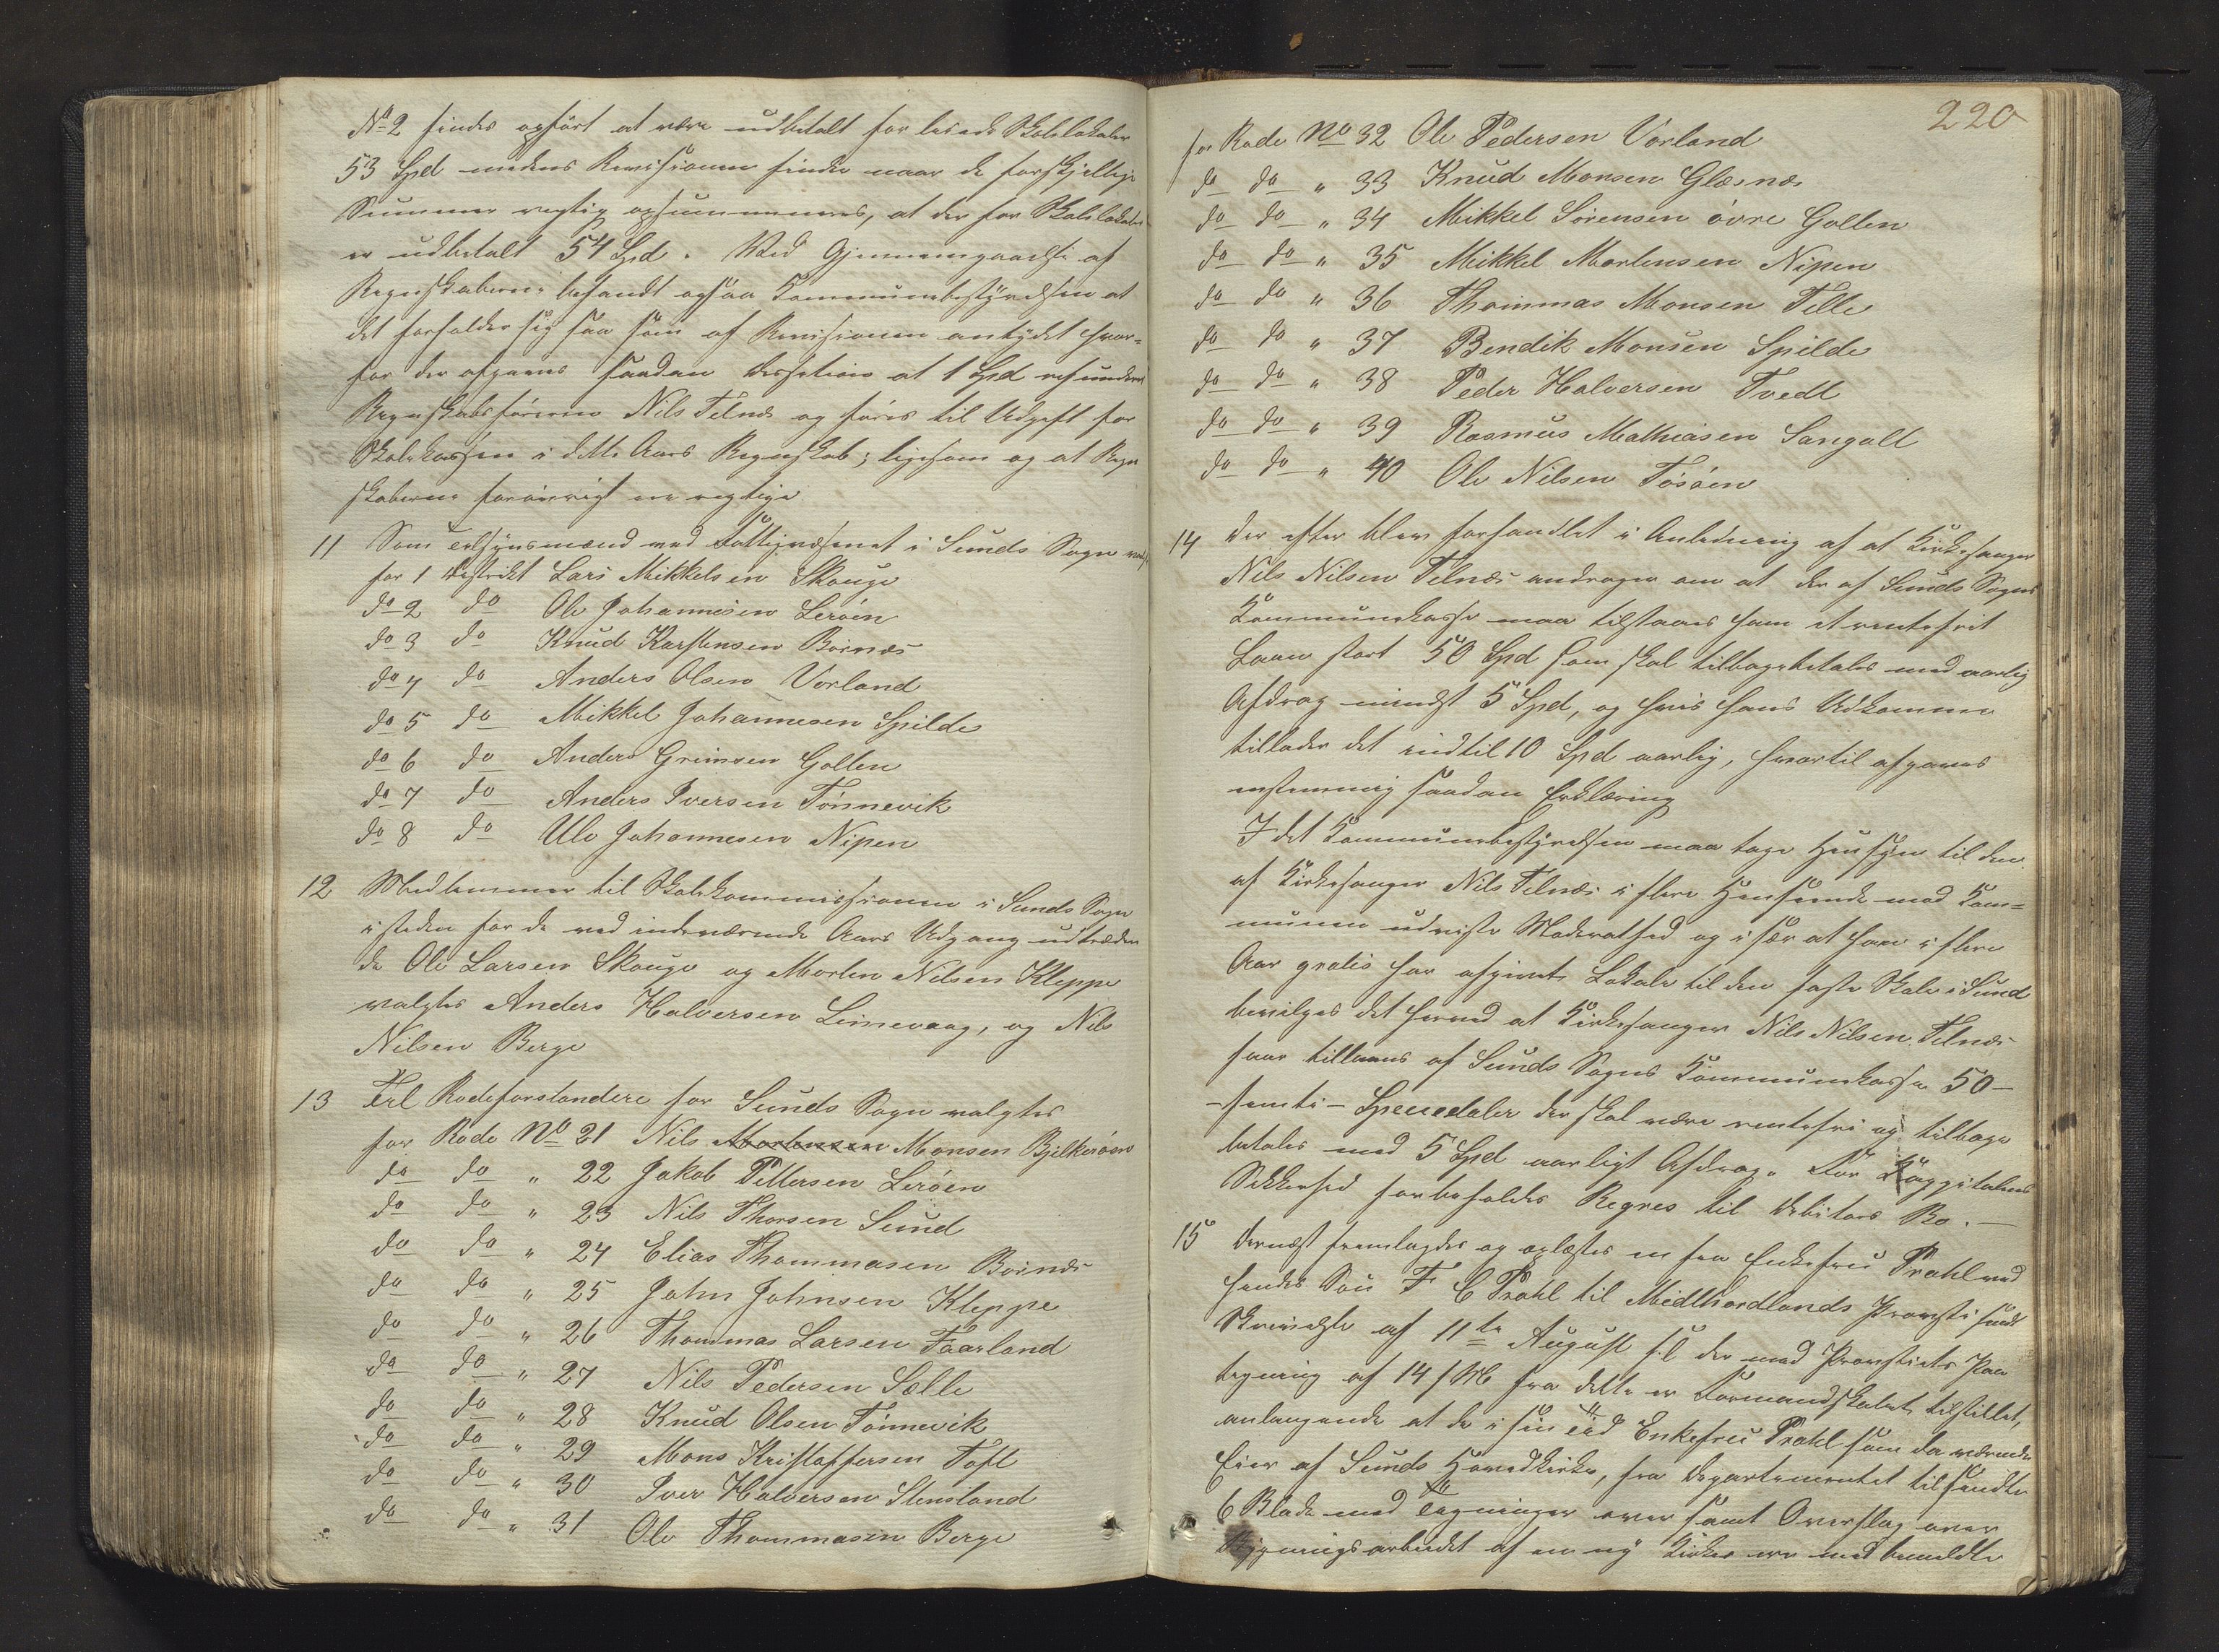 No 2 findes opført at være udbetalt for leiede Skolelokaler
53 Spd medens Revisionen finder naar de forskjellige
Summer rigtig opsummeres, at der for Skolelokaler
er udbetalt 54 Spd. Ved Gjennemgaaelse af
Regnskaberne befandt ogsaa Kommunebestyrelsen at
det forholder sig saa som af Revisionen antydet hvor-
for der afgaves saadan Decision at 1 Spd refunderes
Regnskabsføreren Nils Telnæs og føres til Udgift for
Skolekassen i dette Aars Regnskab; ligesom og at Regn
skaberne forøvrigt ere rigtige
11 Som tilsynsmænd ved Fattigvæsenet i Sunds Sogn
for 1 Distrikt Lars Mikkelsen Skouge
do 2 do Ole Johannesen Lerøen
do 3 do Knud Karstensen Bornæs
do 4 do Anders Olsen Vorland
do 5 do Mikkel Johannesen Spilde
do 6 do Anders Grimsen Golten
do 7 do Anders Iversen Tønnevik
do 8 do Ole Johannesen Nipen
12 Medlemmer til Skolekommissionen i Sunds Sogn
i steden for de ved indeværende Aars Udgang udtræden
de Ole Larsen Skouge og Morten Nilsen Kleppe
valgtes Anders Halversen Limevaag, og Nils
Nilsen Berge
13 Til Rodeforstandere for Sunds Sogn valgtes
for Rode No 21 Nils Mortensen Monsen Bjelkerøen
do do " 22 Jakob Pettersen Lerøen
do do " 23 Nils Thorsen Sund
do do " 24 Elias Thommasen Bornæs
do do " 25 John Johnsen Kleppe
do do " 26 Thommas Larsen Faarland
do do " 27 Nils Pedersen Sælle
do do " 28 Knud Olsen Tønnevik
do do " 29 Mons Kristoffersen Toft
do do " 30 Iver Halversen Stensland
do do " 31 Ole Thommasen Berge
220
for Rode No 32 Ole Pedersen Vorland
do do " 33 Knud Monsen Glæsnæs
do do " 34 Mikkel Sørensen øvre Golten
do do " 35 Mikkel Mortensen Nipen
do do " 36 Thommas Monsen Telle
do do " 37 Bendik Monsen Spilde
do do " 38 Peder Halversen Tvedt
do do " 39 Rasmus Mathiasen Sangolt
do do " 40 Ole Nilsen Tøsøen
14 Der efter blev forhandlet i Anledning af at Kirkesanger
Nils Nilsen Telnæs andrager om at der af Sunds Sogns
Kommunekasse maa tilstaaes ham et rentefrit
Laan stort 50 Spd som skal tilbagebetales med aarlig
Afdrag mindst 5 Spd, og hvis hans Udkomme
tillader det indtil 10 Spd aarlig, hvortil afgaves
enstemmig saadan Erklæring
I det Kommunebestyrelsen maa tage Hensyn til den
af Kirkesanger Nils Telnæs i flere Henseende mod Kom-
munen udviste Moderathed og i sær at han i flere
Aar gratis har afgivet Lokale til den faste Skole i Sund
bevilges det herved at Kirkesanger Nils Nilsen Telnæs
faar tillaans af Sunds Sogns Kommunekasse 50 -
- femti - Speciedaler der skal være rentefri og tilbage
betales med 5 Spd aarligt Afdrag. For Kappitalens
Sikkerhed forbeholdes Regres til Debitors Bo. -
15 Dernæst fremlagdes og oplæstes en fra Enkefru Prahl ved
hendes Søn F C Prahl til Midthordlands Provsti sendt
Skrivelse af 11te August s.l der med Provstiets Paa
tegning af 14 s M fra dette er Formandskabet tilstillet,
anlangende at de i sin tid Enkefru Prahl som da værende
Eier af Sunds Hovedkirke, fra Departementet tilsendte
6 Blade med Tegninger over samt Overslag over
Bygningsarbeidet af en ny Kirke ere med bemeldte